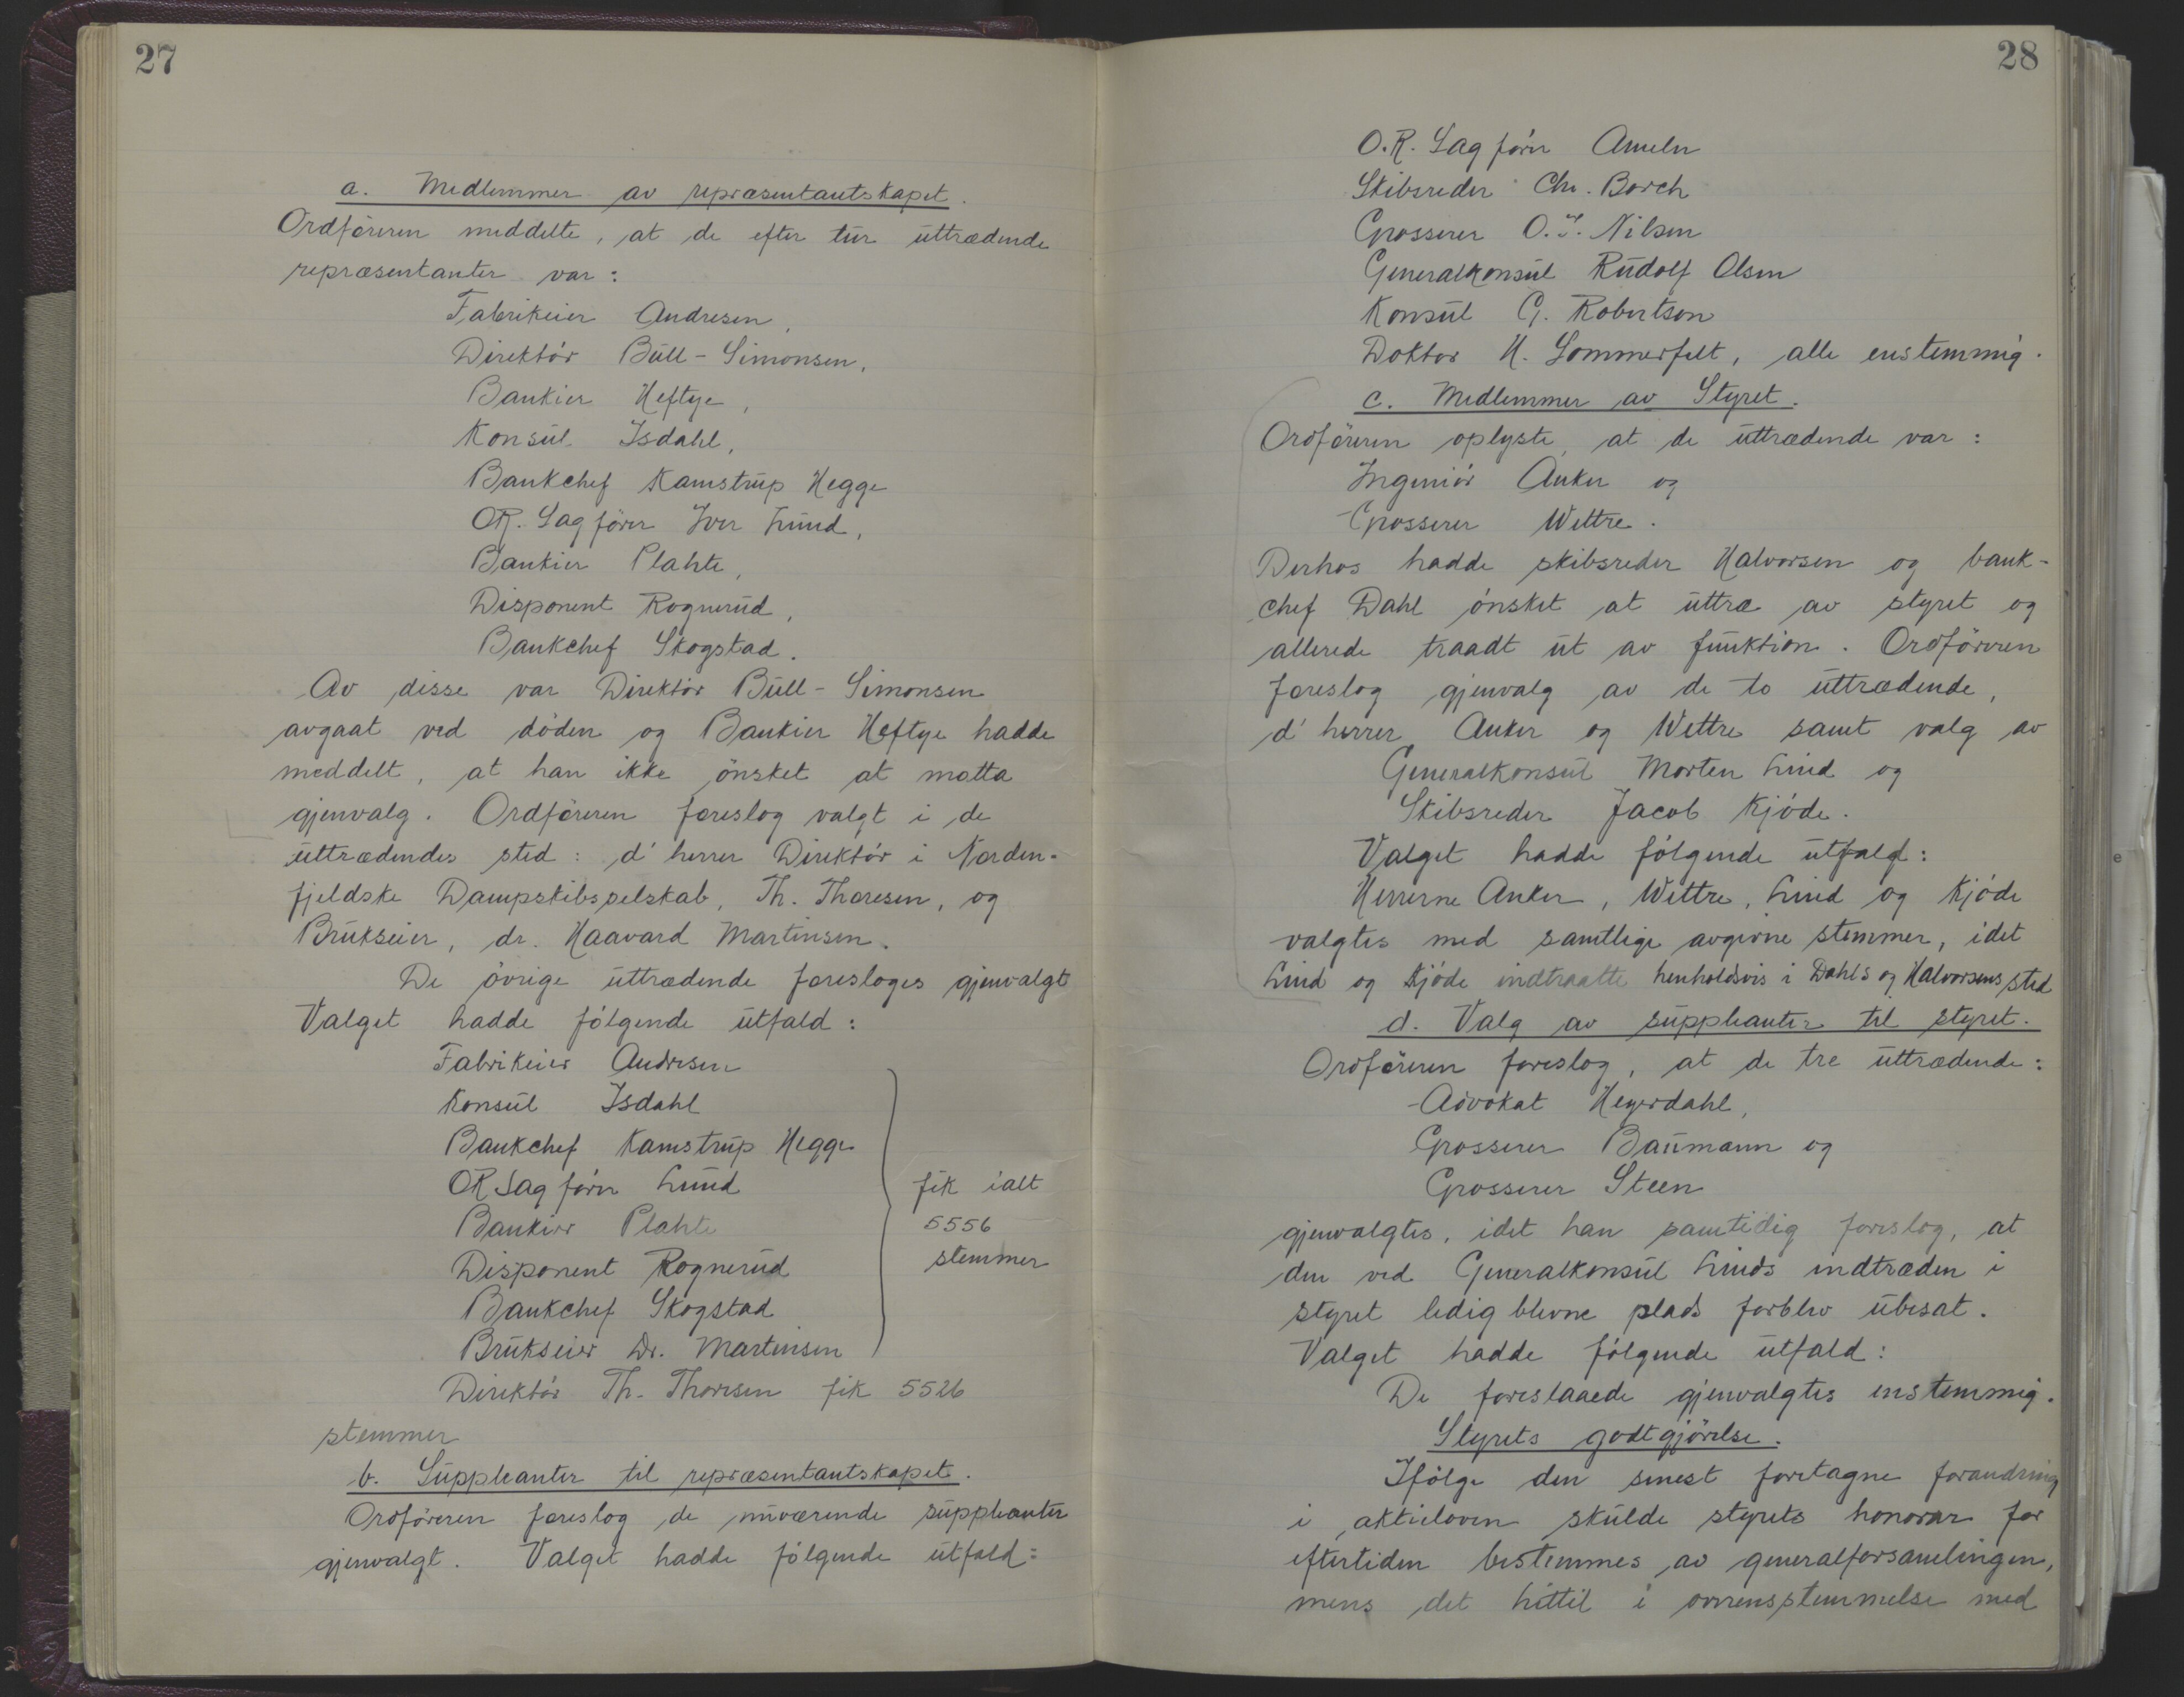 27
a. Medlemmer av repræsentantskapet.
Ordföreren meddelte, at de efter tür üttrædende
repræsentanter var:
Fabrikeier Andresen,
Direktör Büll-Simonsen,
Bankier Heftye,
Konsül Isdahl,
Bankchef Kamstrüp Hegge
O.R. Sagförer Iver Lünd,
Bankier Plahte,
Disponent Rognerüd,
Bankchef Skogstad.
Av disse var Direktör Büll-Simonsen
avgaat ved döden og Bankier Heftye hadde
meddelt, at han ikke önsket at motta
gjenvalg. Ordföreren foreslog valgt i de
üttrædendes sted: d' herrer Direktör i Norden-
fjeldske Dampskibsselskab, Th. Thoresen, og
Brükseier, dr. Haavard Martinsen.
De övrige üttrædende foresloges gjenvalgt
Valget hadde fölgende ütfald:
Fabrikeier Andresen
Konsül Isdahl
Bankchef Kamstrüp Hegge
OR Sagförer Lünd
Bankier Plahte
Disponent Rognerüd
Bankchef Skogstad
Brükseier Dr. Martinsen
fik ialt
5556
stemmer
Direktör Th. Thoresen fik 5526
stemmer
b. Süppleanter til repræsentantskapet.
Ordföreren foreslog de nüværende süppleanter
gjenvalgt. Valget hadde fölgende ütfald:
28
O.R. Sagförer Ameln
Skibsreder Chr. Borch
Grosserer O.J. Nilsen
Generalkonsül Rüdolf Olsen
Konsül G. Robertson
Doktor H. Sommerfelt, alle enstemmig.
c. Medlemmer av Styret.
Ordföreren oplyste, at de üttrædende var:
Ingeniör Anker og
Grosserer Wettre.
Derhos hadde skibsreder Halvorsen og bank-
chef Dahl önsket at üttræ av styret og
allerede traadt üt av fünktion. Ordföreren
foreslog gjenvalg av de to üttrædende,
d' herrer Anker og Wettre samt valg av
Generalkonsül Morten Lind og
Skibsreder Jacob Kjöde.
Valget hadde fölgende ütfald:
Herrerne Anker, Wettre, Lind og Kjöde
valgtes med samtlige avgivne stemmer, idet
Lind og Kjöde indtraatte henholdsvis i Dahls og Halvorsens sted
d. Valg av süppleanter til styret.
Ordföreren foreslog, at de tre üttrædende:
Advokat Heyerdahl,
Grosserer Baümann og
Grosserer Steen
gjenvalgtes, idet han samtidig foreslog, at
den ved Generalkonsül Linds indtræden i
styret ledig blevne plads forblev übesat.
Valget hadde fölgende ütfald:
De foreslaaede gjenvalgtes enstemmig.
Styrets godtgjörelse.
Ifölge den senest foretagne forandring
i aktieloven skülde styrets honorar for
eftertiden bestemmes av generalforsamlingen,
mens det hittil i overensstemmelse med